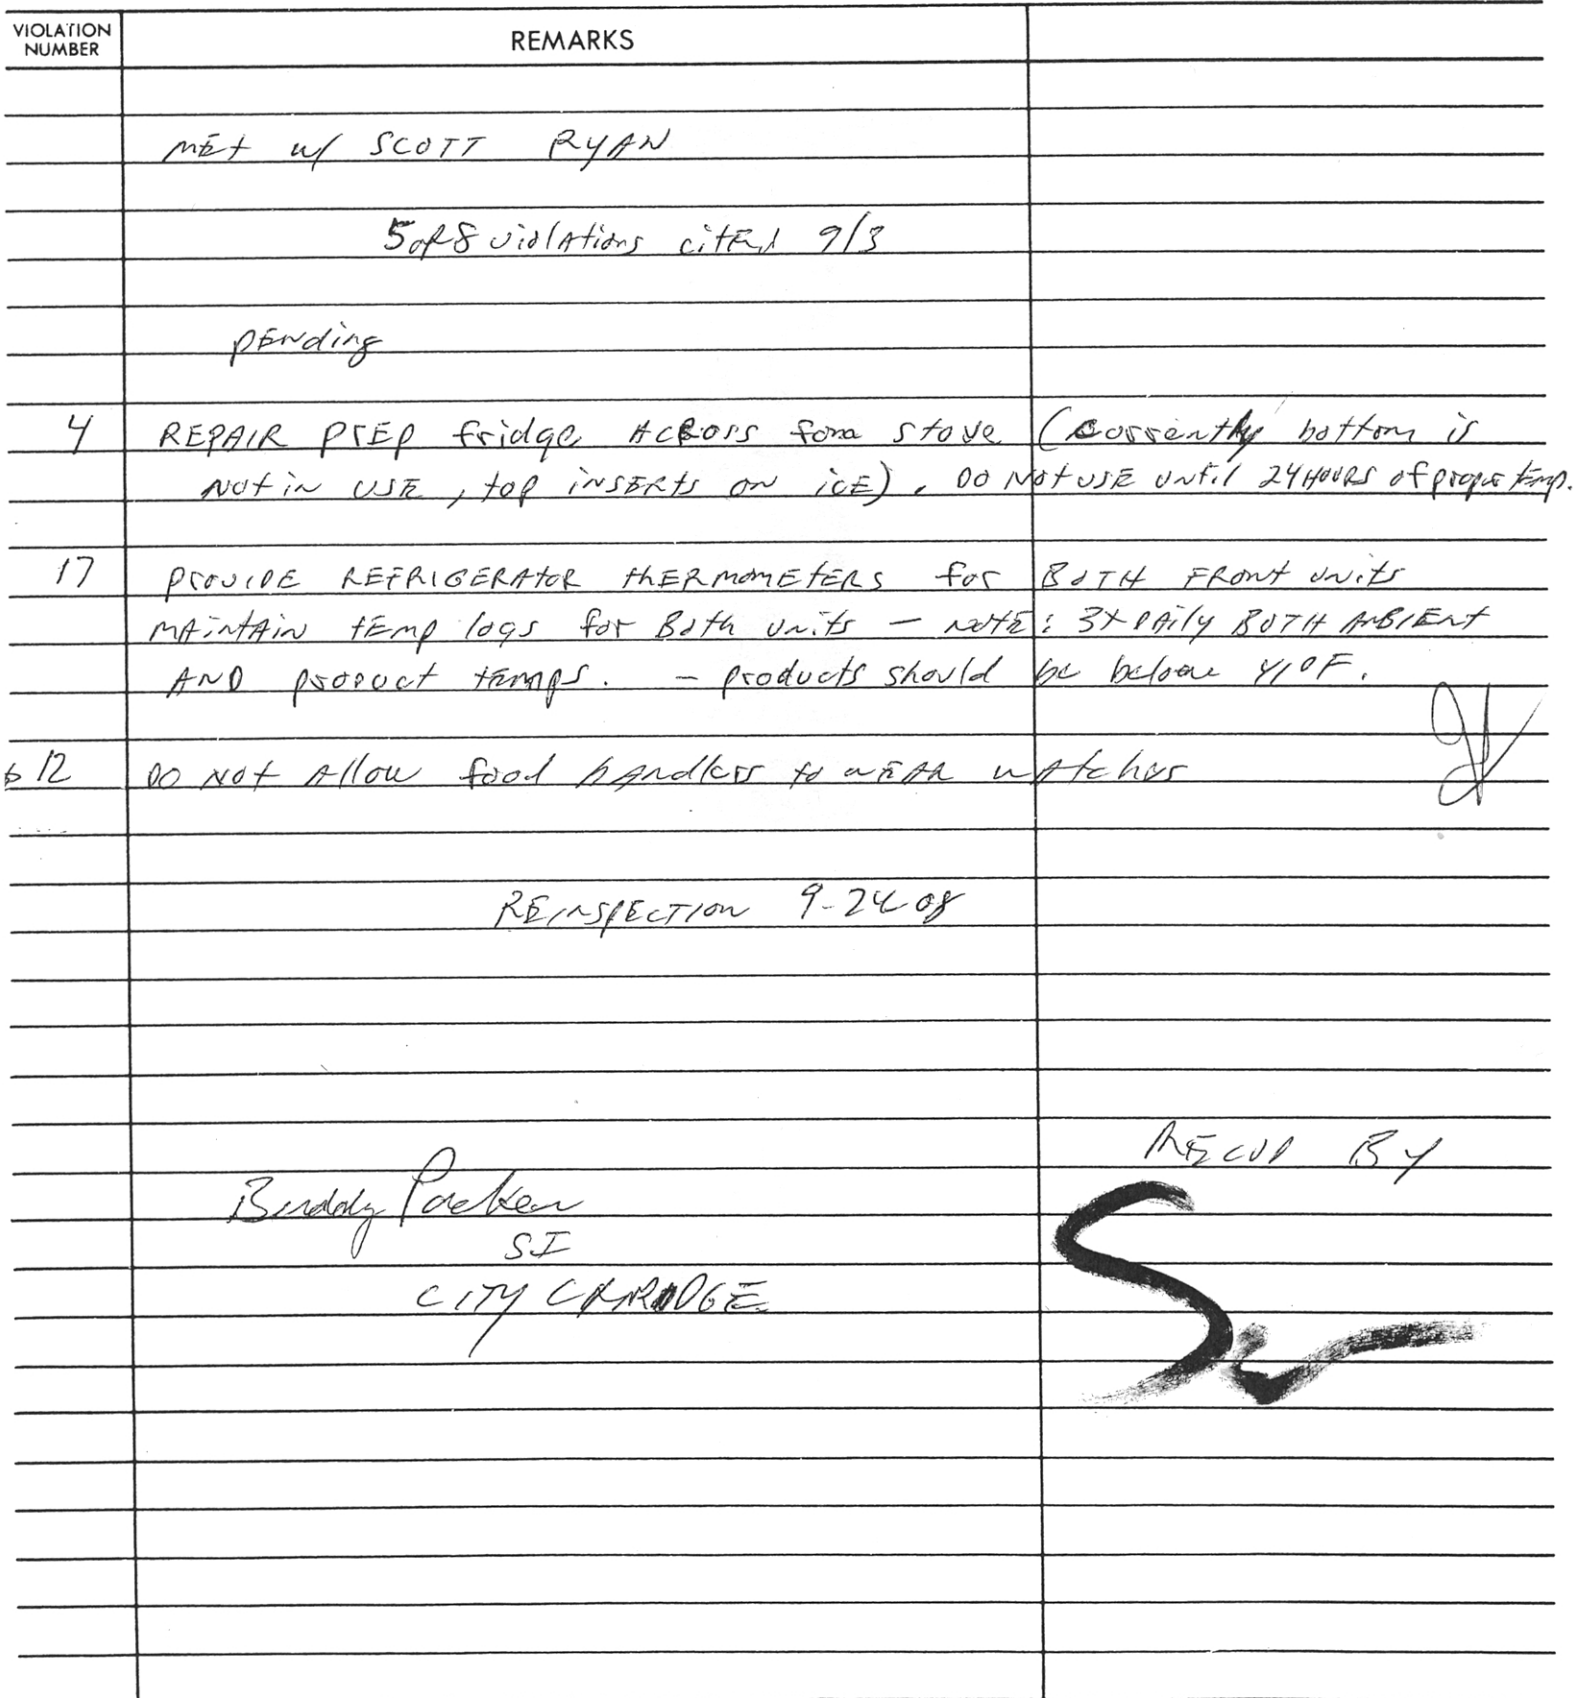 VIOLATION
NUMBER
REMARKS
MET w/ SCOTT RYAN
5 of 8 violations cited 9/3
pending
4 REPAIR PREP fridge ACROSS from stove (currently bottom is
NOT in USE, top inserts on ICE). DO NOT USE until 24 HOURS of proper temp.
17 PROVIDE REFRIGERATOR THERMOMETERS for BOTH FRONT units
MAINTAIN TEMP logs for Both units - NOTE: 3x DAily BOTH AMBIENT
AND product temps. - products should be below 41°F.
12 DO NOT Allow food handlers to wear watches
REINSPECTION 9-24-08
RECVD BY
Buddy Packer
SI
CITY CAMBRIDGE